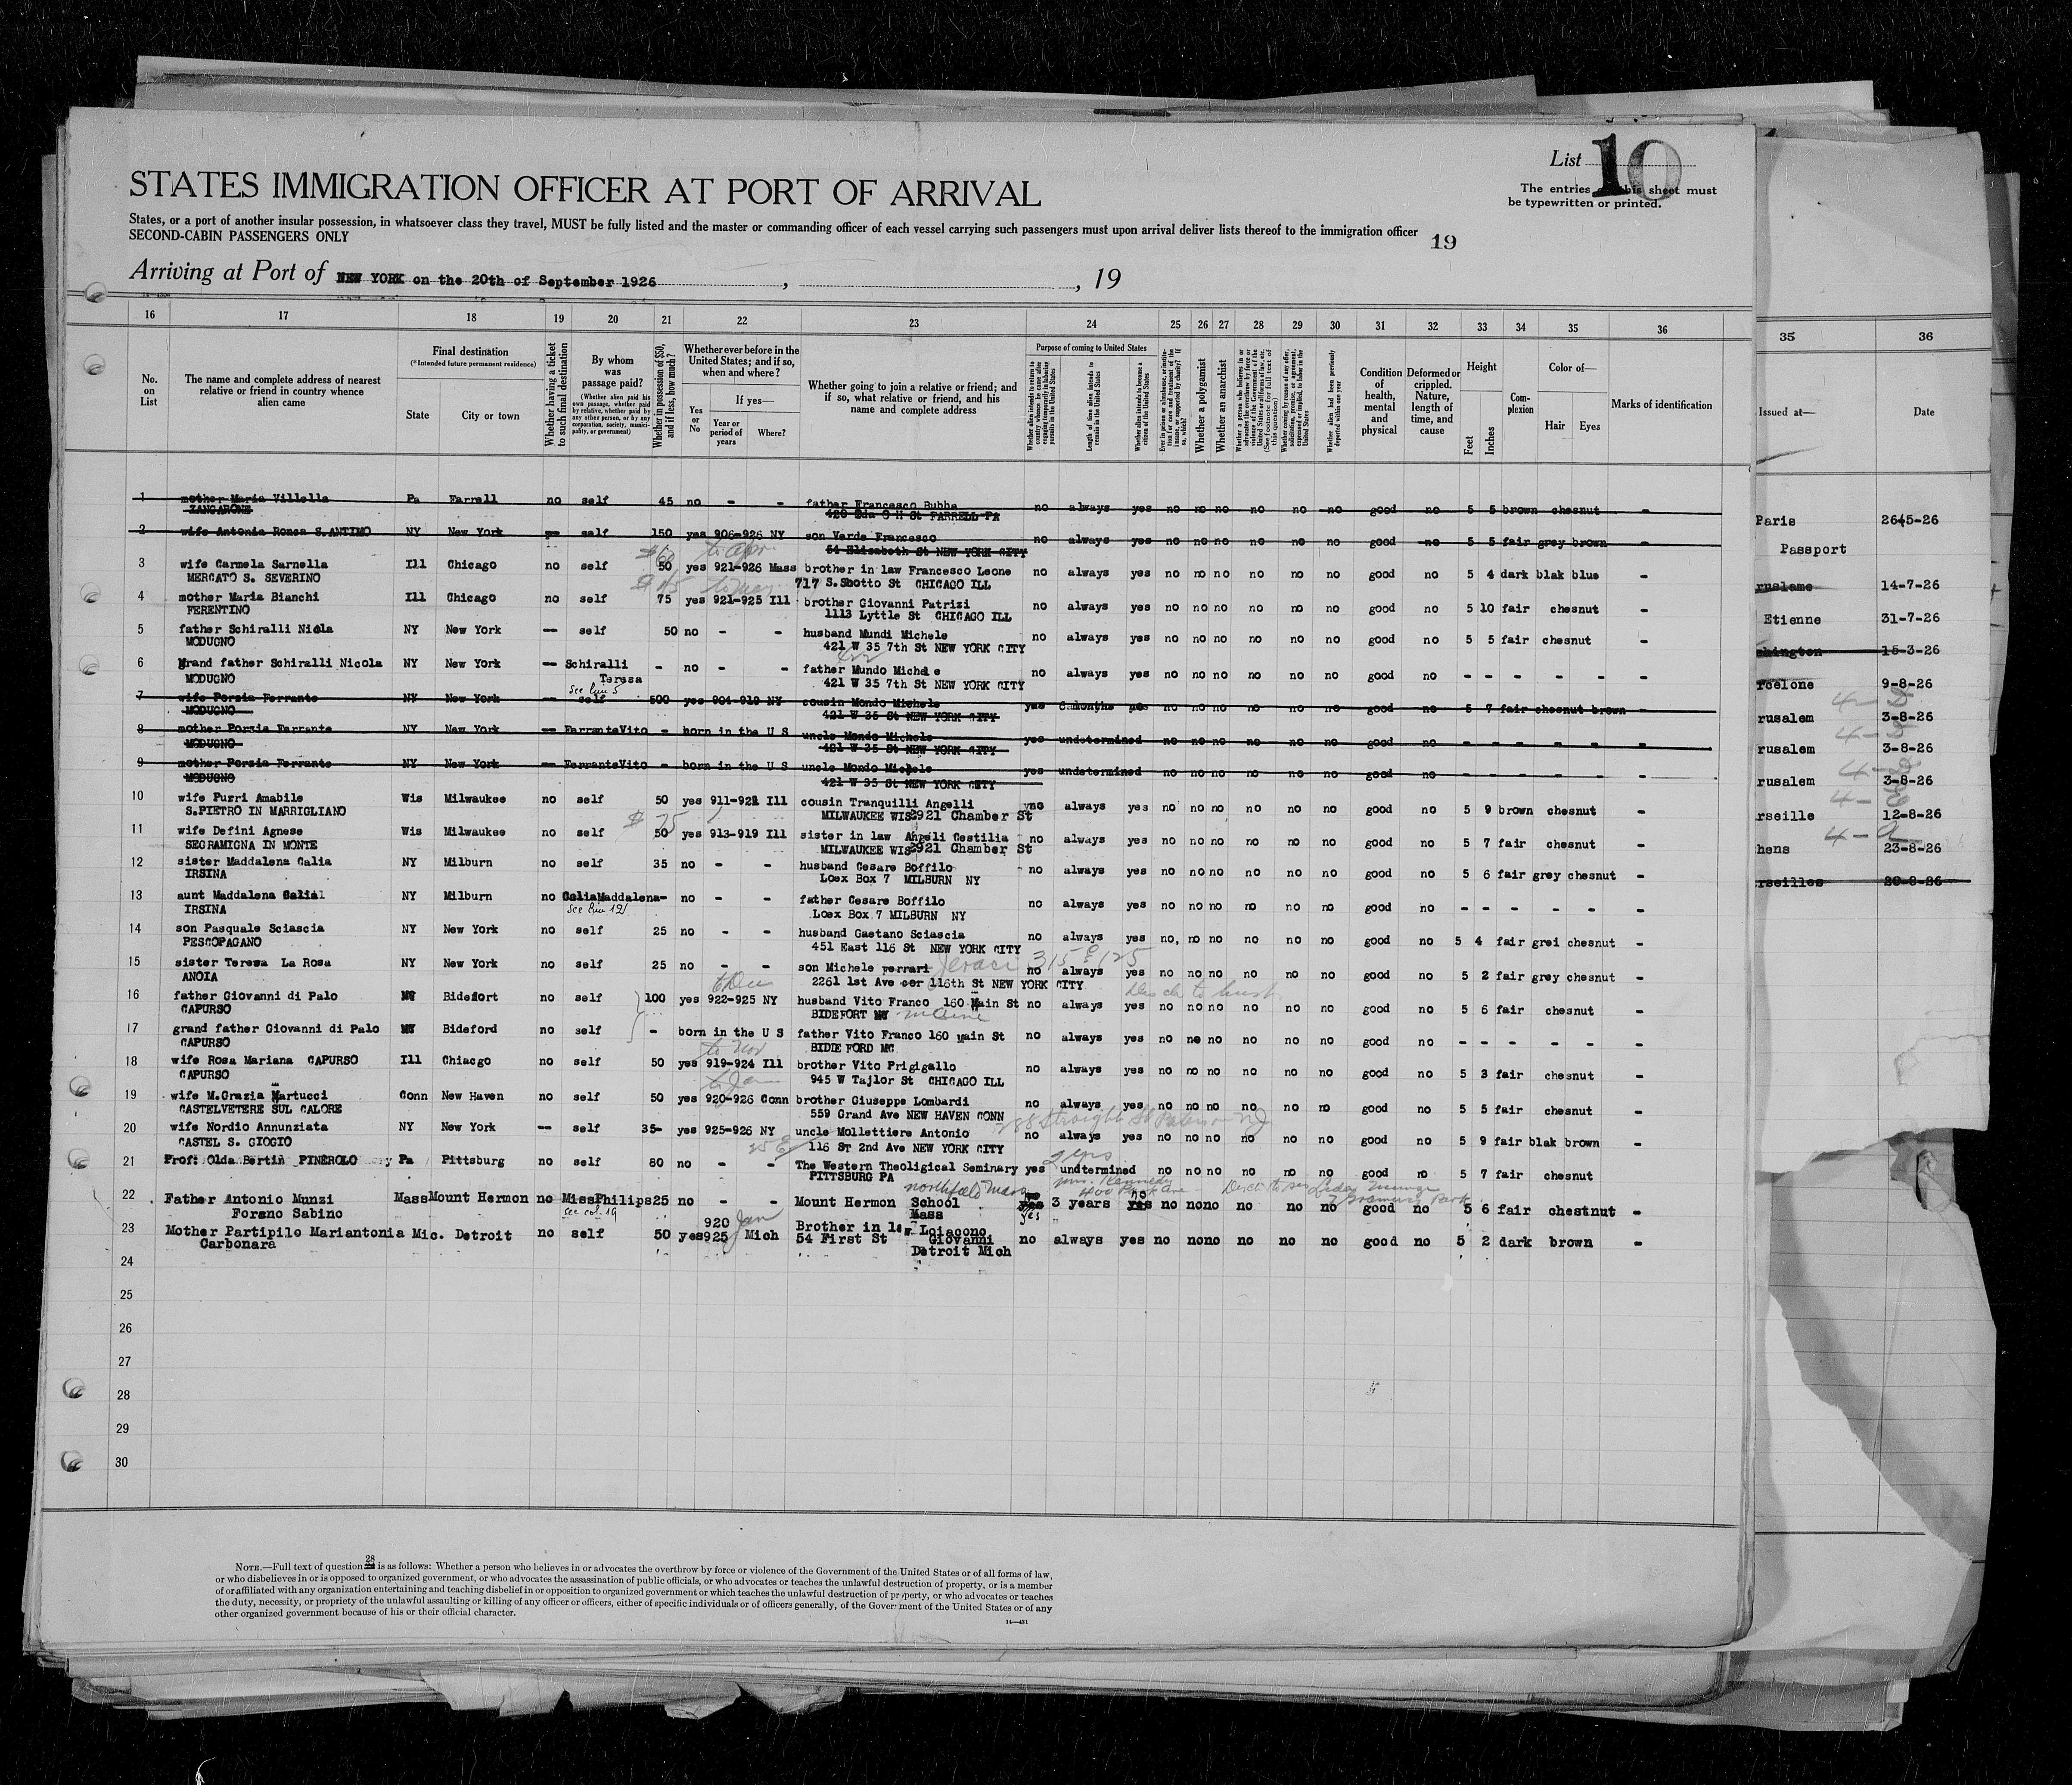 List 10
STATES IMMIGRATION OFFICER AT PORT OF ARRIVAL
The entries this sheet must
be typewritten or printed.
States, or a port of another insular possession, in whatsoever class they travel, MUST be fully listed and the master or commanding officer of each vessel carrying such passengers must upon arrival deliver lists thereof to the immigration officer
SECOND-CABIN PASSENGERS ONLY
19
Arriving at Port of NEW YORK on the 20th of September 1926, , 19
16 17 18 19 20 21 22 23 24 25 26 27 28 29 30 31 32 33 34 35 36
No. on List
The name and complete address of nearest relative or friend in country whence alien came
Final destination
(*Intended future permanent residence)
State
City or town
Whether having a ticket to such final destination
By whom was passage paid?
(Whether alien paid his own passage, whether paid by relative, whether paid by any other person, or by any corporation, society, municipality, or government)
Whether in possession of $50, and if less, how much?
Whether ever before in the United States; and if so, when and where?
Yes or No
If yes—
Year or period of years
Where?
Whether going to join a relative or friend; and if so, what relative or friend, and his name and complete address
Purpose of coming to United States
Length of time alien intends to remain in the United States
Whether alien intends to become a citizen of the United States
Whether a polygamist
Whether an anarchist
Condition of health, mental and physical
Deformed or crippled. Nature, length of time, and cause
Height
Feet
Inches
Complexion
Color of—
Hair
Eyes
Marks of identification
1 mother Maria Villella Pa Farrell no self 45 no - - father Francesco Bubba no always yes no no no no no no good no 5 5 brown chesnut -
ZANGARONE
2 wife Antonia Ronca S.ANTIMO NY New York -- self 150 yes 906-926 NY son Verde Francesco no always yes no no no no no no good no 5 5 fair grey brown -
54 Elisabeth St NEW YORK CITY
3 wife Carmela Sarnella Ill Chicago no self 50 yes 921-926 Mass brother in law Francesco Leone no always yes no no no no no no good no 5 4 dark blak blue -
MERCATO S. SEVERINO 717 S.Sbotto St CHICAGO ILL
4 mother Maria Bianchi Ill Chicago no self 75 yes 921-925 Ill brother Giovanni Patrizi no always yes no no no no no no good no 5 10 fair chesnut -
FERENTINO 1113 Lyttle St CHICAGO ILL
5 father Schiralli Nicla NY New York -- self 50 no - - husband Mundi Michele no always yes no no no no no no good no 5 5 fair chesnut -
MODUGNO 421 W 35 7th St NEW YORK CITY
6 Grand father Schiralli Nicola NY New York -- Schiralli - no - - father Mundo Michele no always yes no no no no no no good no - - - - - -
MODUGNO Teresa 421 W 35 7th St NEW YORK CITY
see line 5
7 wife Porzia Ferrante NY New York -- self 500 yes 904-919 NY cousin Mondo Michele yes 6 months yes no no no no no no good no 5 7 fair chesnut brown -
MODUGNO 421 W 35 St NEW YORK CITY
8 mother Porzia Ferrante NY New York -- FerranteVito - born in the U S uncle Mondo Michele yes undetermined no no no no no no good no - - - - - -
MODUGNO 421 W 35 St NEW YORK CITY
9 mother Porzia Ferrante NY New York -- FerranteVito - born in the U S uncle Mondo Michele yes undetermined no no no no no no good no - - - - - -
MODUGNO 421 W 35 St NEW YORK CITY
10 wife Purri Amabile Wis Milwaukee no self 50 yes 911-921 Ill cousin Tranquilli Angelli no always yes no no no no no no good no 5 9 brown chesnut -
S.PIETRO IN MARRIGLIANO MILWAUKEE WIS 2921 Chamber St
11 wife Defini Agnese Wis Milwaukee no self $75 50 yes 913-919 Ill sister in law Angeli Cestilia no always yes no no no no no no good no 5 7 fair chesnut -
SEGRAMIGNA IN MONTE MILWAUKEE WIS 2921 Chamber St
12 sister Maddalena Calia NY Milburn no self 35 no - - husband Cesare Boffilo no always yes no no no no no no good no 5 6 fair grey chesnut -
IRSINA Loex Box 7 MILBURN NY
13 aunt Maddalena Calia NY Milburn no CaliaMaddalena- no - - father Cesare Boffilo no always yes no no no no no no good no - - - - - -
IRSINA see line 12 Loex Box 7 MILBURN NY
14 son Pasquale Sciascia NY New York no self 25 no - - husband Gaetano Sciascia no always yes no, no no no no no good no 5 4 fair grei chesnut -
PESCOPAGANO 451 East 116 St NEW YORK CITY
15 sister Teresa La Rosa NY New York no self 25 no - - son Michele ferrari no always yes no no no no no no good no 5 2 fair grey chesnut -
ANOIA 2261 1st Ave cor 116th St NEW YORK CITY
16 father Giovanni di Palo Bidefort no self 100 yes 922-925 NY husband Vito Franco 160 Main St no always yes no no no no no no good no 5 6 fair chesnut -
CAPURSO BIDEFORT Maine
17 grand father Giovanni di Palo Bideford no self - born in the U S father Vito Franco 160 main St no always yes no no no no no no good no - - - - - -
CAPURSO BIDIE FORD MC
18 wife Rosa Mariana CAPURSO Ill Chiacgo no self 50 yes 919-924 Ill brother Vito Prigigallo no always yes no no no no no no good no 5 3 fair chesnut -
CAPURSO 945 W Tajlor St CHICAGO ILL
19 wife M.Grazia Martucci Conn New Haven no self 50 yes 920-926 Conn brother Giuseppe Lombardi no always yes no no no no no no good no 5 5 fair chesnut -
CASTELVETERE SUL CALORE 559 Grand Ave NEW HAVEN CONN
20 wife Nordio Annunziata NY New York -- self 35- yes 925-926 NY uncle Mollettiere Antonio no always yes no no no no no no good no 5 9 fair blak brown -
CASTEL S. GIOGIO 116 ST 2nd Ave NEW YORK CITY
21 Prof: Olda Bertin PINEROLO Pa Pittsburg no self 80 no - - The Western Theoligical Seminary yes undtermined no no no no no no good no 5 7 fair chesnut
PITTSBURG PA 2 yrs
22 Father Antonio Munzi Mass Mount Hermon no MissPhilips 25 no - - Mount Hermon School yes 3 years yes no no no no no no good no 5 6 fair chestnut -
Forano Sabino see col. 19 Mass yes
23 Mother Partipilo Mariantonia Mic. Detroit no self 50 yes 920 925 Jan Mich Brother in law Loiacono no always yes no no no no no no good no 5 2 dark brown -
Carbonara 54 First St Giovanni
Detroit Mich
24
25
26
27
28
29
30
NOTE.—Full text of question 28 is as follows: Whether a person who believes in or advocates the overthrow by force or violence of the Government of the United States or of all forms of law,
or who disbelieves in or is opposed to organized government, or who advocates the assassination of public officials, or who advocates or teaches the unlawful destruction of property, or is a member
of or affiliated with any organization entertaining and teaching disbelief in or opposition to organized government or which teaches the unlawful destruction of property, or who advocates or teaches
the duty, necessity, or propriety of the unlawful assaulting or killing of any officer or officers, either of specific individuals or of officers generally, of the Government of the United States or of any
other organized government because of his or their official character.
14—431
35 36
Issued at— Date
Paris 2645-26
Passport
rusleme 14-7-26
Etienne 31-7-26
shington 15-3-26
rcelone 9-8-26
rusalem 3-8-26
rusalem 3-8-26
rusalem 3-8-26
rseille 12-8-26
hens 23-8-26
rseilles 20-8-26